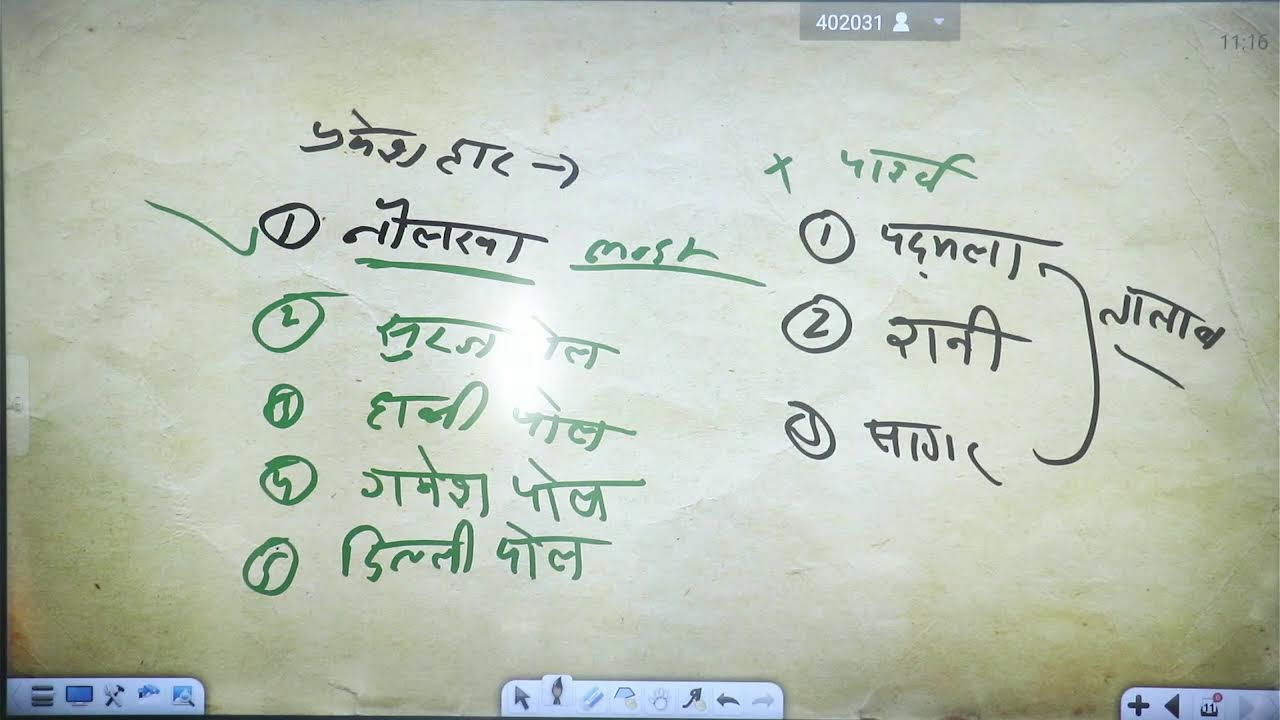 402031
11:16
प्रवेश द्वार →
① नौलखा most
② सुरज पोल
③ हाथी पोल
④ गणेश पोल
⑤ दिल्ली पोल
x पार्श्व
① पद्मला
② रानी
③ सागर
तालाब
11